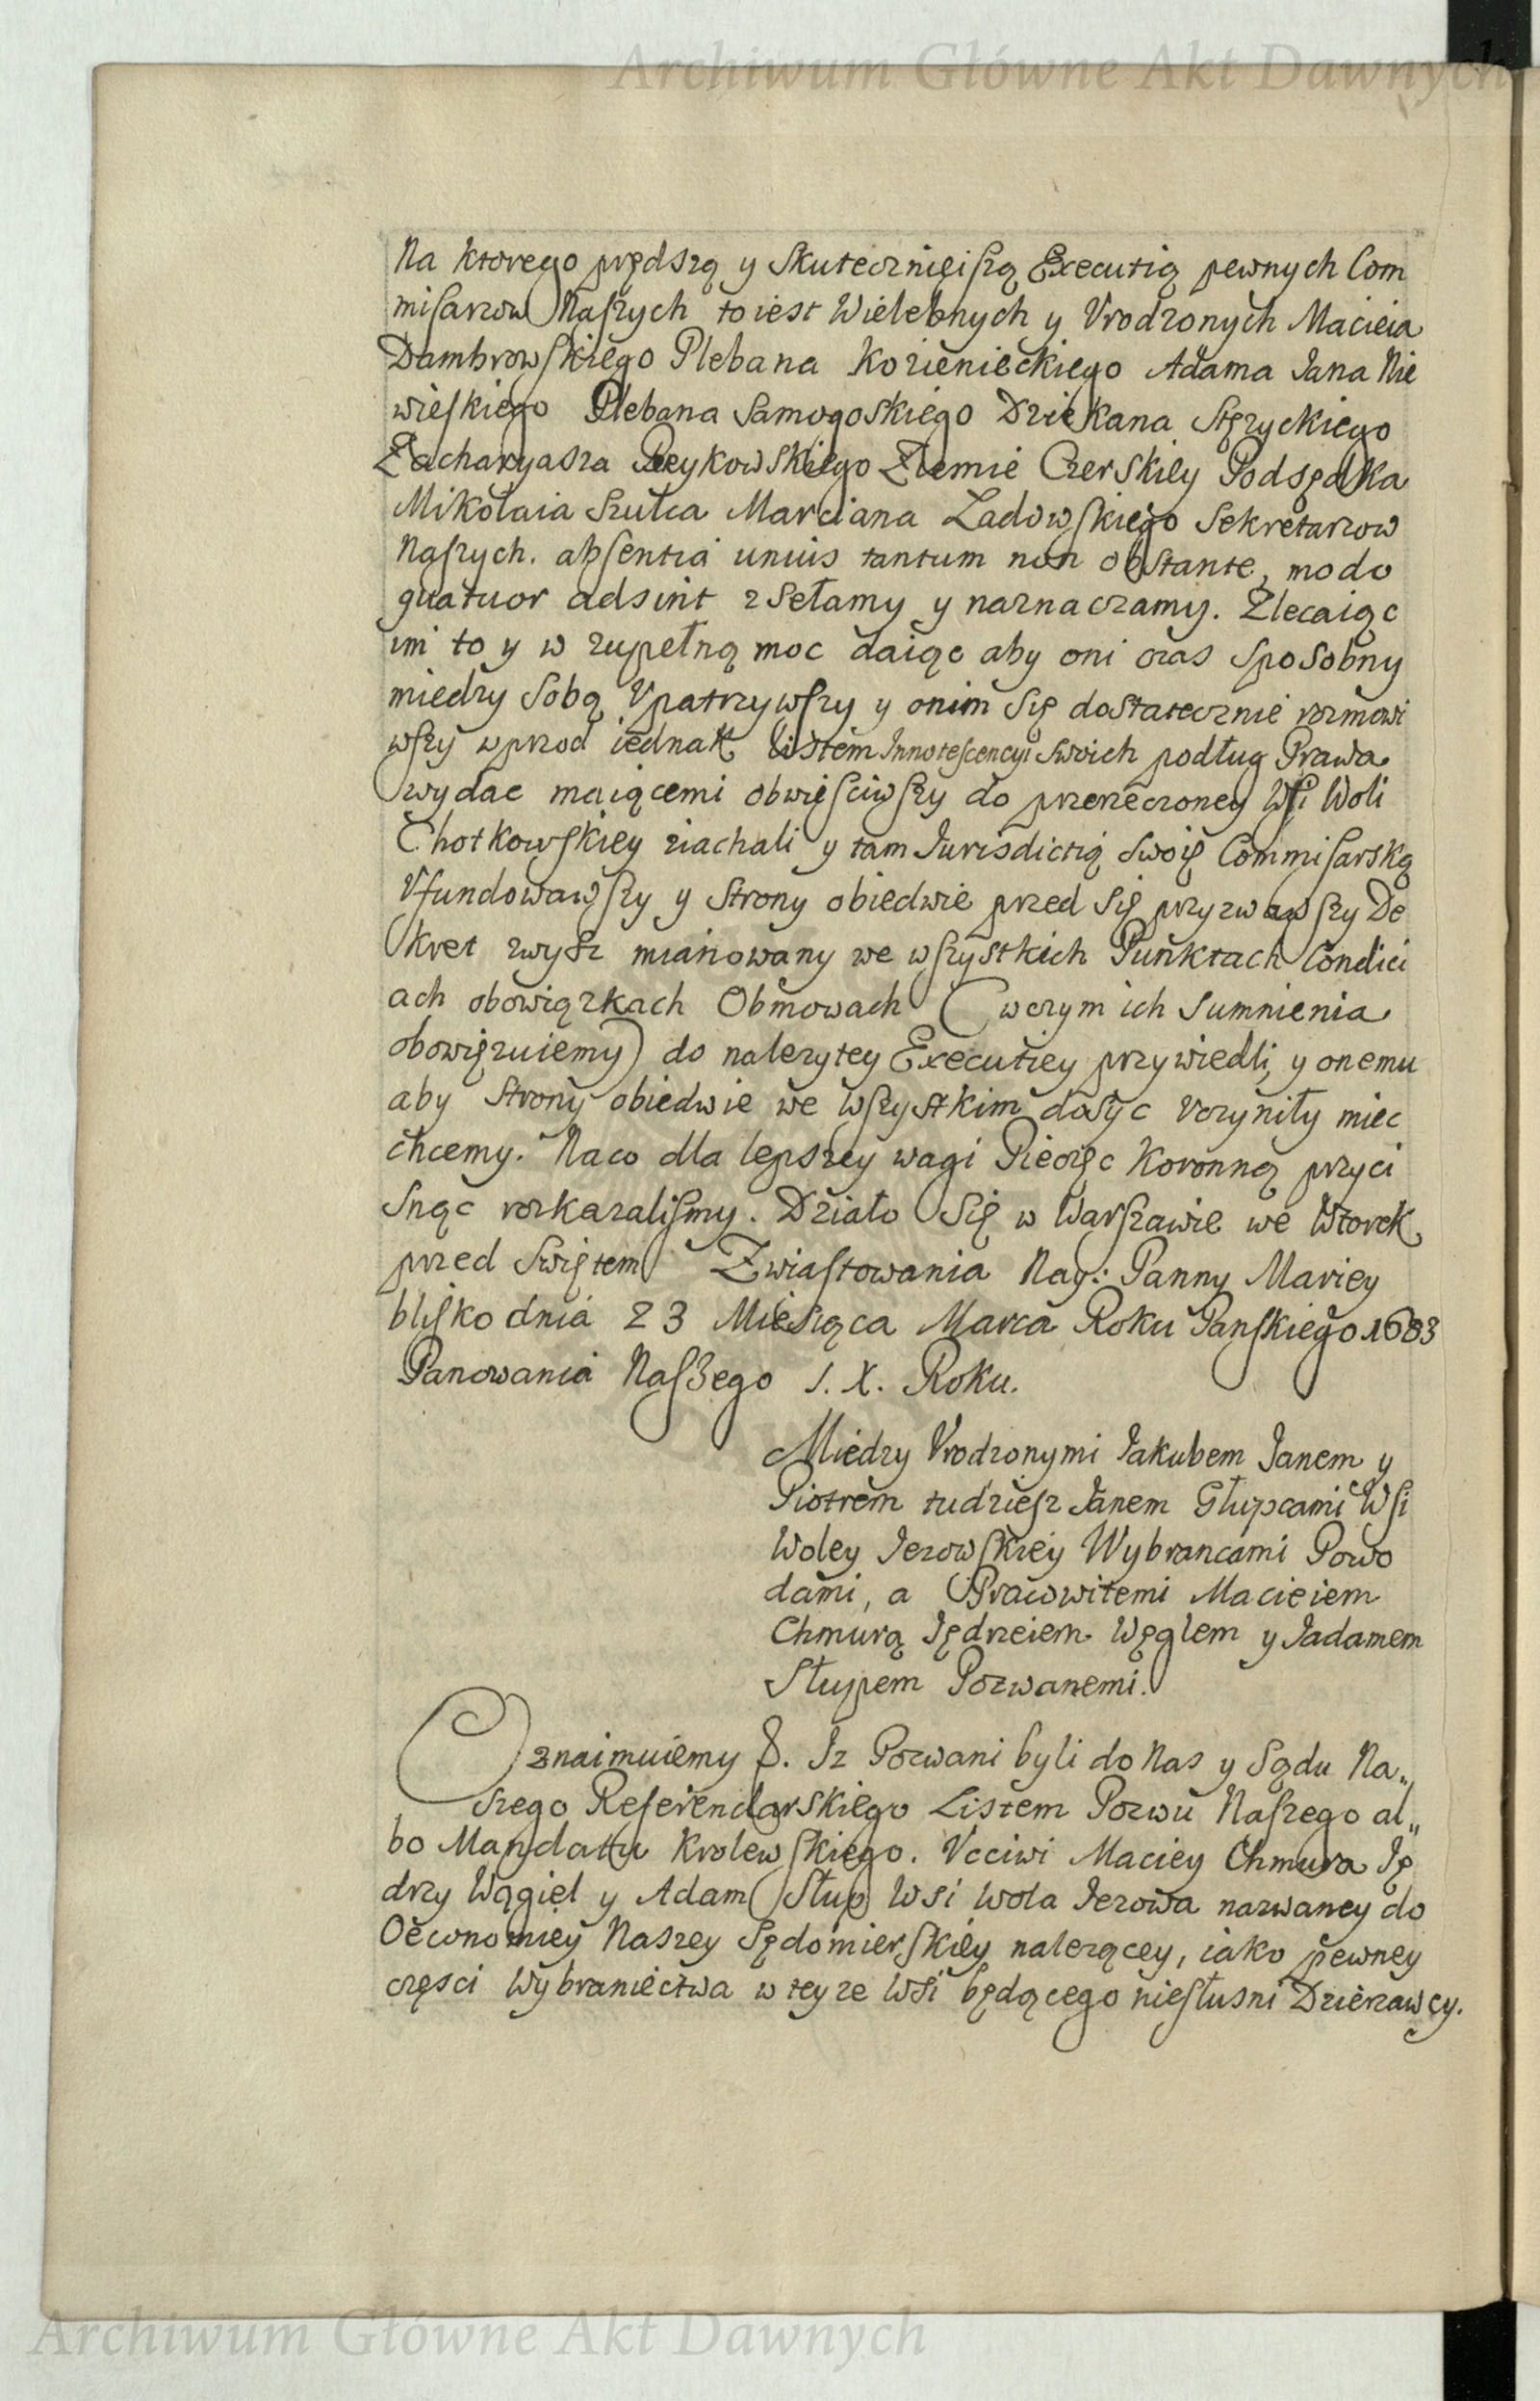 Archiwum Główne Akt Dawnych
Na ktorego prędszą y skutecznięiszą Executią pewnych Com
misarzow Naszych to iest Wielebnych y Vrodzonych Macieia
Dambrowskiego Plebana Kozienieckiego Adama Jana Nie
wieskiego Plebana Samogoskiego Dziekana Stęzyckiego
Zacharyasza Reykowskiego Ziemie Czerskiey Podsędka
Mikołaia Szulca Marciana Ladowskiego Sekretarzow
Naszych. absentia unius tantum non obstante, modo
quatuor adsint zsełamy y naznaczamy. Zlecaiąc
im to y w zupełną moc daiąc aby oni czas sposobny
miedzy sobą Vpatrzywszy y onim się dostatecznie rozmowi
wszy wprzod iednak listem Innotescencyi swoich podług Prawa
wydac maiącemi obwięsciwszy do przerzeczoney Wsi Woli
Chotkowskiey ziachali y tam Jurisdictią swoię Commisarską
Vfundowawszy y Strony obiedwie przed się przyzwawszy De
kret zwysz mianowany we wszystkich Punktach Condici
ach obowiązkach Obmowach (wczym ich Sumnienia
obowięzuiemy) do nalezytey Executiey przywiedli, y onemu
aby Strony obiedwie we wszystkim dosyc Vczyniły miec
chcemy. Naco dla lepszey wagi Pieczęc Koronną przyci
snąc rozkazalismy. Działo się w Warszawie we Wtorek
przed Swiętem Zwiastowania Nay: Panny Mariey
blisko dnia 23 Miesiąca Marca Roku Panskiego 1683
Panowania Naszego I. X. Roku.
Miedzy Vrodzonymi Jakubem Janem y
Piotrem tudziesz Janem Głupcami Wsi
Woley Jezowskiey Wybrancami Powo
dami, a Pracowitemi Macieiem
Chmurą Jędrzeiem Węglem y Jadamem
Słupem Pozwanemi.
Oznaimuiemy &. Iz Pozwani byli do Nas y Sądu Na„
szego Referendarskiego Listem Pozwu Naszego al„
bo Mandatu Krolewskiego. Vcciwi Maciey Chmura Ję
drzy Wągiel y Adam Słup Wsi Wola Jezowa nazwaney do
Oeconomiey Naszey Sędomierskiey nalezącey, iako pewney
częsci Wybraniectwa w teyze Wsi będącego niesłusni Dzierzawcy.
Archiwum Główne Akt Dawnych